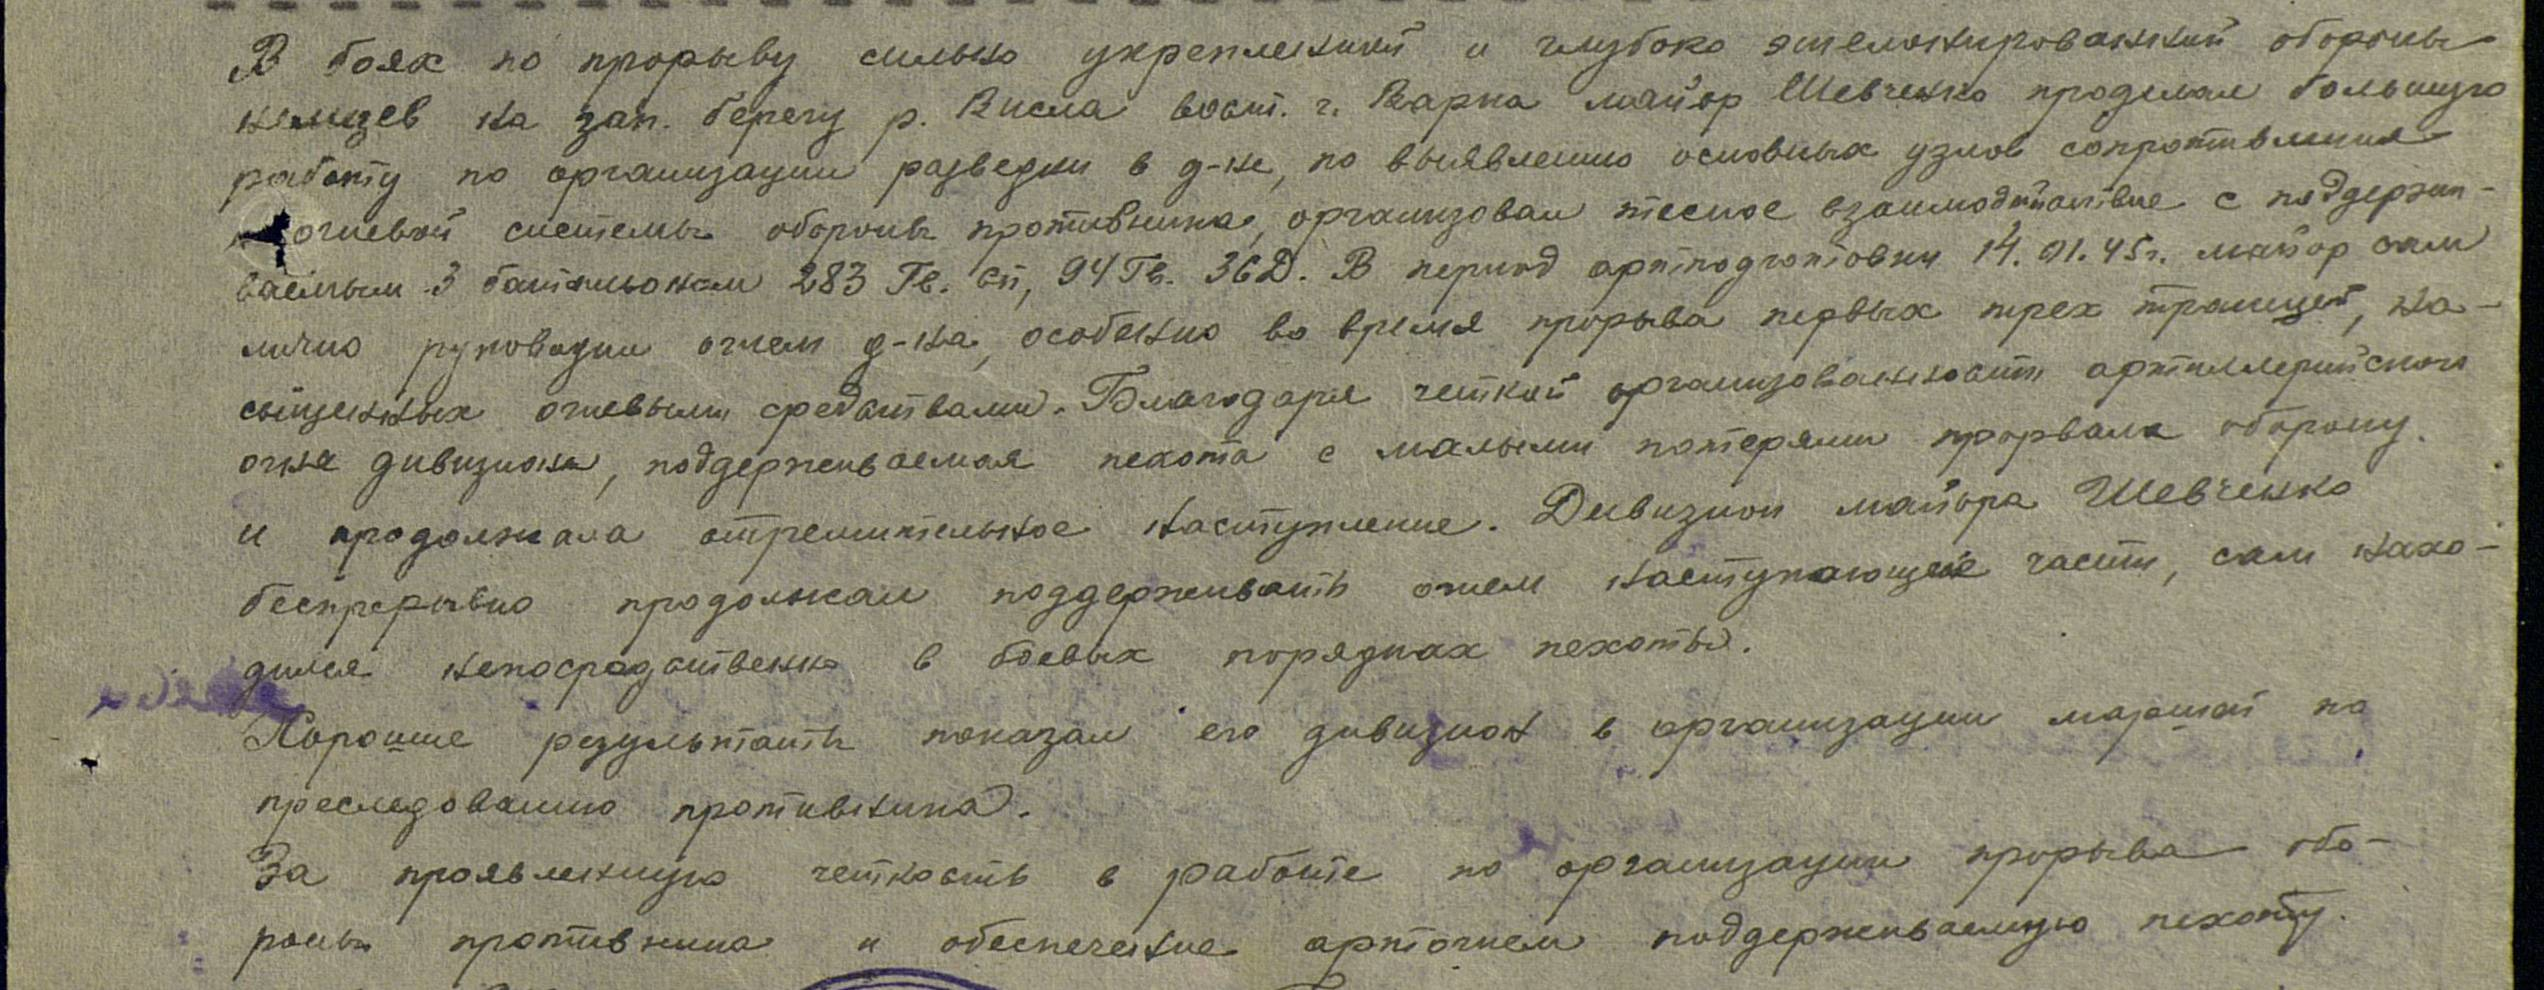 В боях по прорыву сильно укрепленной и глубоко эшелонированной обороны
немцев на зап. берегу р. Висла вост. г. Варка майор Шевченко проделал большую
работу по организации разведки в д-не, по выявлению основных узлов сопротивления
огневой системы обороны противника, организовал тесное взаимодействие с поддержи-
ваемым 3 батальоном 283 Гв. сп, 94 Гв. ЗСД. В период артподготовки 14.01.45г. майор сам
лично руководил огнем д-на, особенно во время прорыва первых трех траншей, на-
сыщенных огневыми средствами. Благодаря четкой организованности артиллерийского
огня дивизиона, поддерживаемая пехота с малыми потерями прорвала оборону
и продолжала стремительное наступление. Дивизион майора Шевченко
беспрерывно продолжал поддерживать огнем наступающие части, сам нахо-
дился непосредственно в боевых порядках пехоты.
Хорошие результаты показал его дивизион в организации маршей по
преследованию противника.
За проявленную четкость в работе по организации прорыва обо-
роны противника и обеспечение артогнем поддерживаемую пехоту.